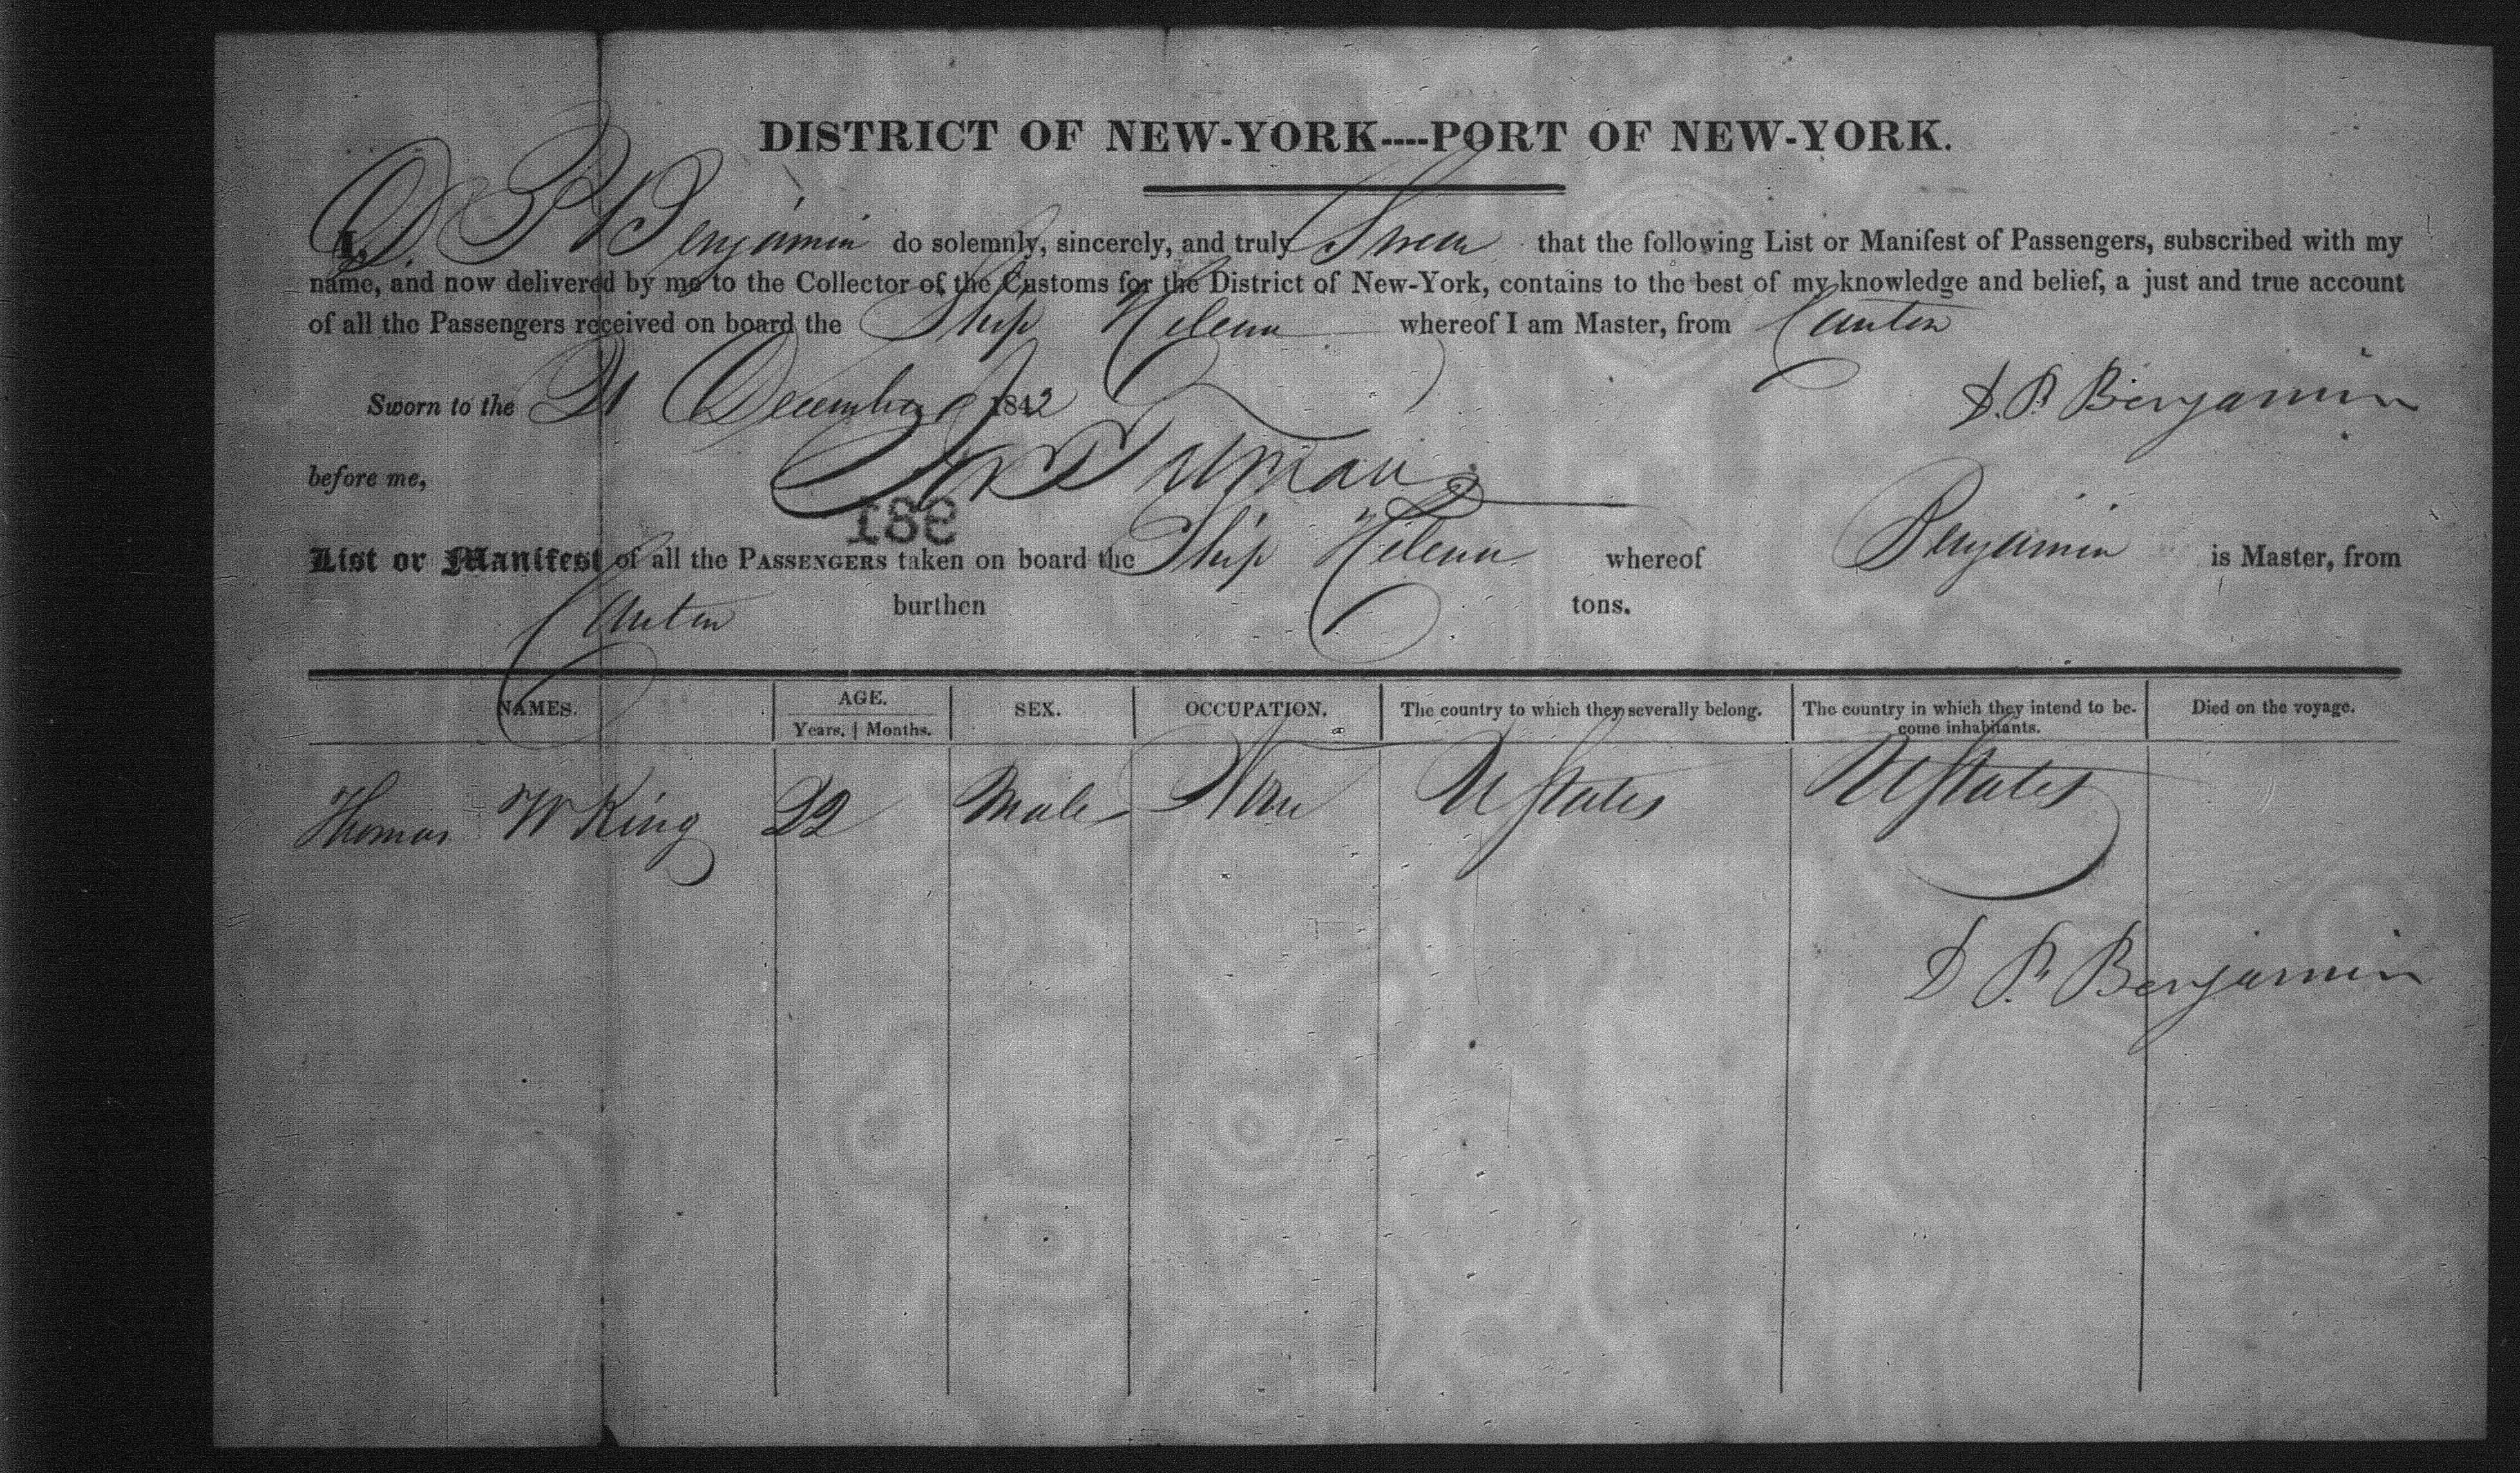 DISTRICT OF NEW-YORK----PORT OF NEW-YORK.
I, D. P. Benjamin do solemnly, sincerely, and truly Swear that the following List or Manifest of Passengers, subscribed with my
name, and now delivered by me to the Collector of the Customs for the District of New-York, contains to the best of my knowledge and belief, a just and true account
of all the Passengers received on board the Ship Helena whereof I am Master, from Canton
Sworn to the 21 December 1842
D. P. Benjamin
before me,
981
List or Manifest of all the PASSENGERS taken on board the Ship Helena whereof Benjamin is Master, from
Canton burthen tons.
NAMES. AGE. SEX. OCCUPATION. The country to which they severally belong. The country in which they intend to be- Died on the voyage.
Years. Months. come inhabitants.
Thomas W King 22 Male None U States U States
D P. Benjamin